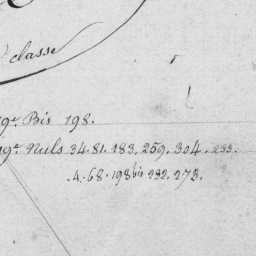 classe
9º. Bis 198.
9º. Nuls 34. 81. 183. 259. 304. 233.
4. 68. 198 bis 232. 273.